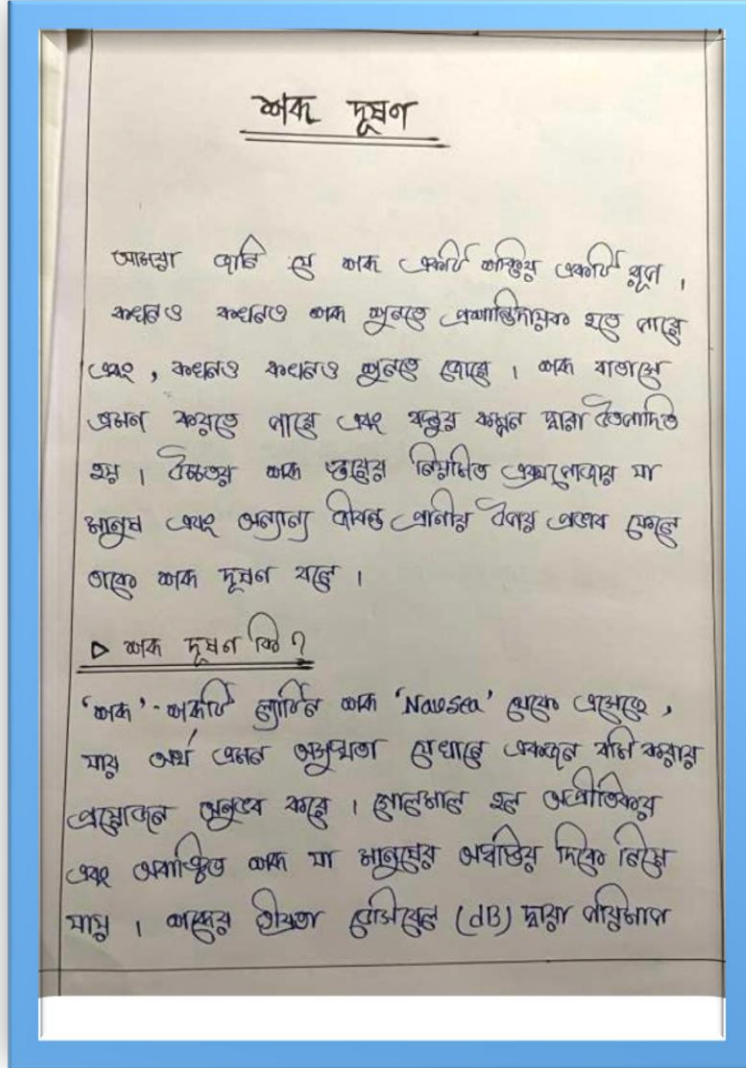 শব্দ দূষণ
আমরা জানি যে শব্দ একটি শক্তির একটি রূপ ।
কখনও কখনও শব্দ শুনতে প্রশান্তিদায়ক হতে পারে
এবং , কখনও কখনও শুনতে পারে । শব্দ বাতাসে
ভ্রমন করতে পারে এবং বস্তুর কম্পন দ্বারা উৎপাদিত
হয় । উচ্চতর শব্দ স্তরের নিয়মিত এক্সপোজার যা
মানুষ এবং অন্যান্য জীবন্ত প্রানীর উপর প্রভাব ফেলে
তাকে শব্দ দূষণ বলে ।
▷ শব্দ দূষণ কি ?
'শব্দ' - শব্দটি ল্যাটিন শব্দ 'Nausea' থেকে এসেছে ,
যার অর্থ এমন অসুস্থতা যেখানে একজন বমি করার
প্রয়োজন অনুভব করে । গোলমাল হল অপ্রীতিকর
এবং অবাঞ্ছিত শব্দ যা মানুষের অস্বস্তির দিকে নিয়ে
যায় । শব্দের তীব্রতা ডেসিবেল (dB) দ্বারা পরিমাপ